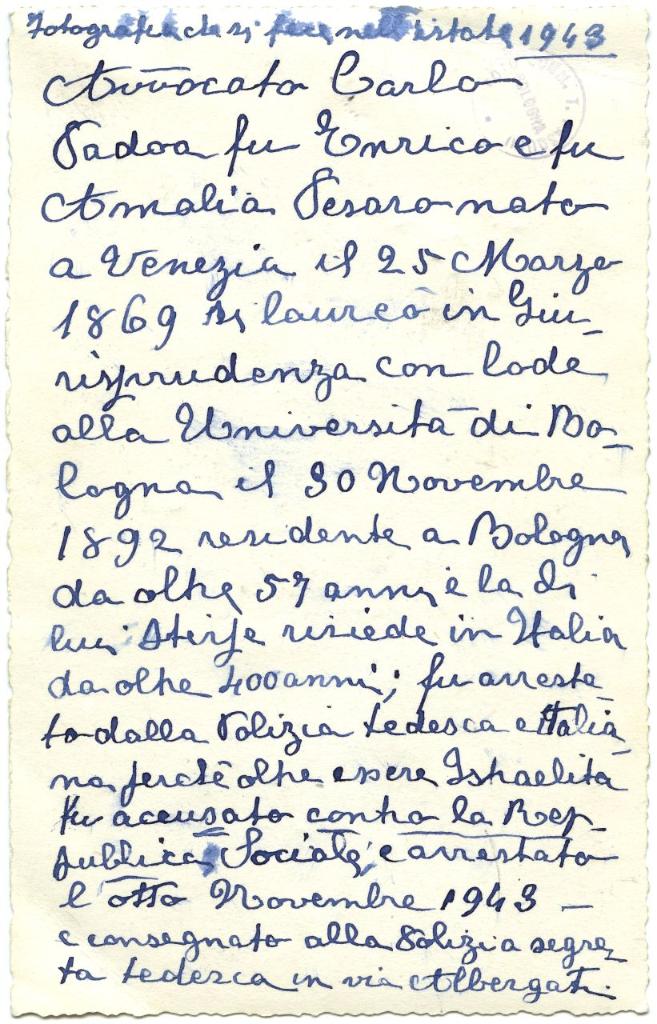 Fotografia che si fece nell'estate 1943
Avvocato Carlo
Padoa fu Enrico e fu
Amalia Pesaro nato
a Venezia il 25 Marzo
1869 si laureò in Giu-
risprudenza con lode
alla Università di Bo-
logna il 30 Novembre
1892 residente a Bologna
da oltre 57 anni e la di
lui Stirpe risiede in Italia
da oltre 400 anni; fu arresta-
to dalla Polizia tedesca e Italia-
na perchè oltre essere Ishaelita
fu accusato contro la Rep-
pubblica Sociale, e arrestato
l'otto Novembre 1943 —
e consegnato alla Polizia segre-
ta tedesca in via Albergati.